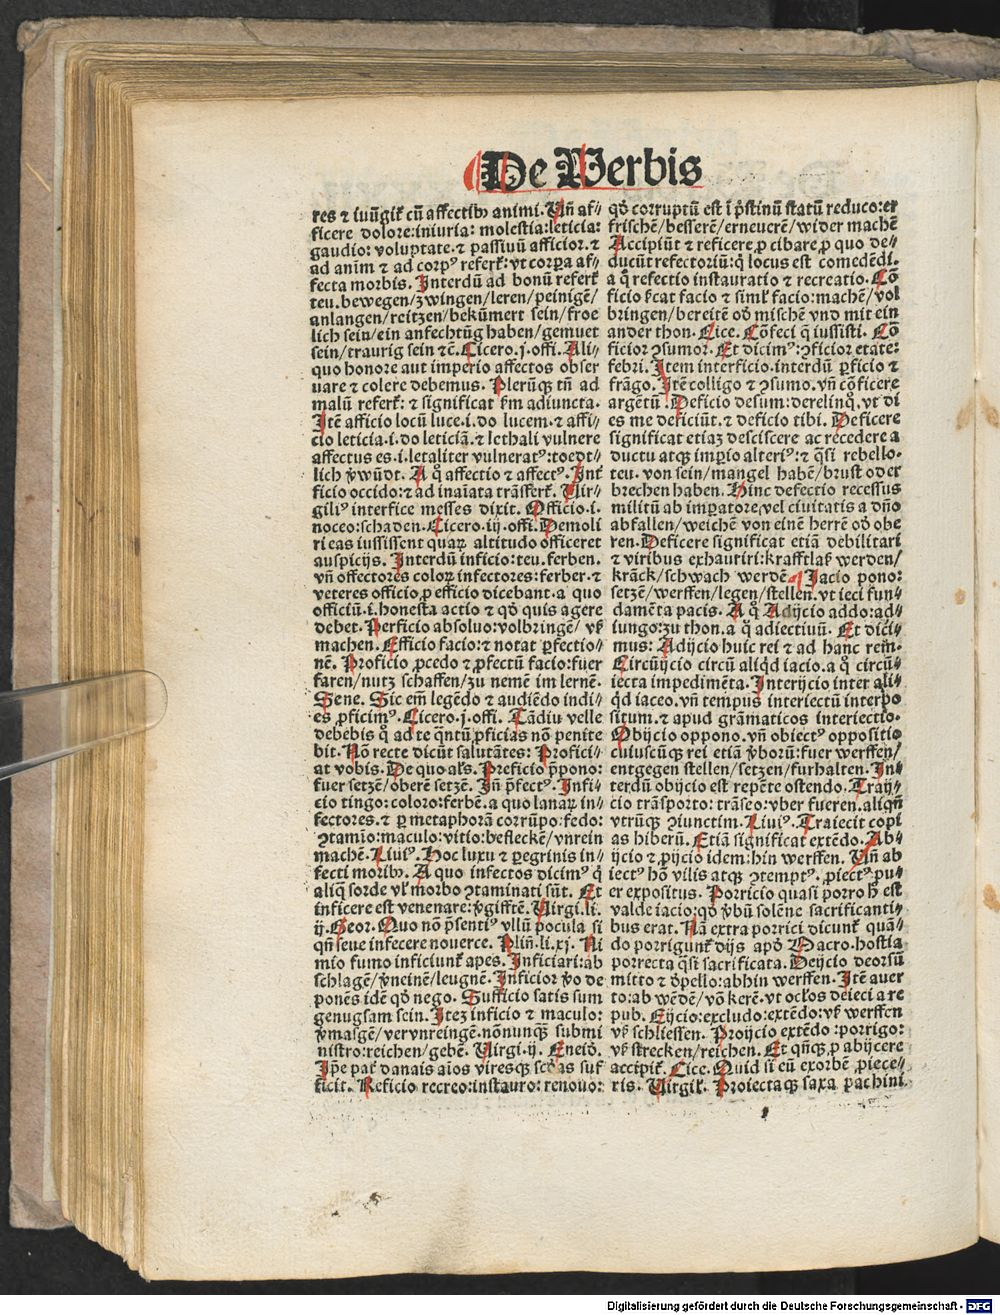 De Verbis
res ⁊ iuũgit̃ cũ affectibꝰ animi. Vñ af⸗
ficere dolore: iniuria: molestia: leticia:
gaudio: voluptate. ⁊ passiuũ afficior. ⁊
ad anim̃ ⁊ ad corpꝰ refert̃: vt corꝑa af⸗
fecta morbis. Interdũ ad bonũ refert̃
teu. bewegen/ zwingen/ leren/ peinigẽ/
anlangen/ reitzen/ bekũmert sein/ froe
lich sein/ ein anfechtũg haben/ gemuet
sein/ traurig sein ⁊c̃. Cicero. j. offi. Ali⸗
quo honore aut imperio affectos obser
uare ⁊ colere debemus. Plerũqꝫ tñ ad
malũ refert̃: ⁊ significat ẜm adiuncta.
Itẽ afficio locũ luce. i. do lucem. ⁊ affi⸗
cio leticia. i. do leticiã. ⁊ lethali vulnere
affectus es. i. letaliter vulneratꝰ: toedt⸗
lich v̉wũdt. A q̃ affectio ⁊ affectꝰ. Int̃
ficio occido: ⁊ ad inaĩata trãsfert̃. Vir⸗
giliꝰ interfice messes dixit. Officio. i.
noceo: schaden. Cicero. iij. offi. Demoli
ri eas iussissent quaꝝ altitudo officeret
auspicijs. Interdũ inficio: teu. ferben.
vñ offectores coloꝝ infectores: ferber. ⁊
veteres officio ꝓ efficio dicebant. a quo
officiũ. i. honesta actio ⁊ qđ quis agere
debet. Perficio absoluo: volbringẽ/ vß
machen. Efficio facio: ⁊ notat ꝑfectio⸗
nẽ. Proficio ꝓcedo ⁊ ꝓfectũ facio: fuer
faren/ nutz schaffen/ zu nemẽ im lernẽ.
Sene. Sic em̃ legẽdo ⁊ audiẽdo indi⸗
es ꝓficimꝰ. Cicero. j. offi. Tãdiu velle
debebis q̃ ad te q̃ntũ ꝓficias nõ penite
bit. Nõ recte dicũt salutãtes: Profici⸗
at vobis. De quo als̃. Preficio p̃pono:
fuer setzẽ/ oberẽ setzẽ. Iñ p̃fectꝰ. Infi⸗
cio tingo: coloro: ferbẽ. a quo lanaꝝ in⸗
fectores. ⁊ ꝑ metaphorã corrũpo: fedo:
ꝯtamĩo: maculo: vitio: befleckẽ/ vnrein
machẽ. Liuiꝰ. Hoc luxu ⁊ ꝑegrinis in⸗
fecti moribꝰ. A quo infectos dicimꝰ q̃
aliq̃ sorde vl̃ morbo ꝯtaminati sũt. Et
inficere est venenare: v̉gifftẽ. Virgi. li.
ij. Geor. Quo nõ p̃sentiꝰ vllũ pocula si
qñ seue infecere nouerce. Pliñ. li. xj. Ni
mio fumo inficiunt̃ apes. Inficiari: ab
schlagẽ/ v̉neinẽ/ leugnẽ. Inficior v̉o de
ponẽs idẽ qđ nego. Sufficio satis sum
genugsam sein. Iteꝫ inficio ⁊ maculo:
v̉masgẽ/ vervnreingẽ. nõnunqꝫ submi
nistro: reichen/ gebẽ. Virgi. ij. Eneiđ.
Ip̃e pat̃ danais aĩos viresqꝫ scđas suf
ficit. Reficio recreo: instauro: renouo:
qđ corruptũ est ĩ p̃stinũ statũ reduco: er
frischẽ/ besserẽ/ erneuerẽ/ wider machẽ
Accipiũt ⁊ reficere ꝓ cibare, ꝓ quo de⸗
ducũt refectoriũ: q̃ locus est comedẽdi.
a q̃ refectio instauratio ⁊ recreatio. Cõ
ficio ẜcat facio ⁊ siml̃ facio: machẽ/ vol
bringen/ bereitẽ ođ mischẽ vnd mit ein
ander thon. Cice. Cõfeci q̃ iussisti. Cõ
ficior ꝯsumor. Et dicimꝰ: ꝯficior etate:
febri. Item interficio. interdũ ꝑficio ⁊
frãgo. Itẽ colligo ⁊ ꝯsumo. vñ cõficere
argẽtũ. Deficio desum: derelinq̃. vt di
es me deficiũt. ⁊ deficio tibi. Deficere
significat etiaꝫ desciscere ac recedere a
ductu atqꝫ imꝑio alteriꝰ: ⁊ q̃si rebello.
teu. von sein/ mangel habẽ/ brust oder
brechen haben. Hinc defectio recessus
militũ ab imꝑatore, vel ciuitatis a dño
abfallen/ weichẽ von einẽ herrẽ ođ obe
ren. Deficere significat etiã debilitari
⁊ viribus exhauriri: krafftlaß werden/
krãck/ schwach werdẽ ¶ Iacio pono:
setzẽ/ werffen/ legen/ stellen. vt ieci fun⸗
damẽta pacis. A q̃ Adijcio addo: ad⸗
iungo: zu thon. a q̃ adiectiuũ. Et dici⸗
mus: Adijcio huic rei ⁊ ad hanc rem̃.
Circũijcio circũ aliqđ iacio. a q̃ circũ⸗
iecta impedimẽta. Interijcio inter ali⸗
qđ iaceo. vñ tempus interiectũ interpo
situm. ⁊ apud grãmaticos interiectio.
Obijcio oppono. vñ obiectꝰ oppositio
cuiuscũqꝫ rei etiã v̉borũ: fuer werffen/
entgegen stellen/ setzen/ furhalten. In⸗
terdũ obijcio est repẽte ostendo. Traij⸗
cio trãsporto: trãseo: vber fueren. aliqñ
vtrũqꝫ ꝯiunctim. Liuiꝰ. Traiecit copi
as hiberũ. Etiã significat extẽdo. Ab⸗
ijcio ⁊ ꝓijcio idem: hin werffen. Vñ ab
iectꝰ hõ vilis atqꝫ ꝯtemptꝰ. ꝓiectꝰ: pu⸗
er expositus. Porricio quasi porro ħ est
valde iacio: qđ v̉bũ solẽne sacrificanti⸗
bus erat. Nã extra porrici dicunt̃ quã⸗
do porrigunt̃ dijs apđ Macro. hostia
porrecta q̃si sacrificata. Deijcio deorsũ
mitto ⁊ đpello: abhin werffen. Itẽ auer
to: ab wẽdẽ/ võ kerẽ. vt ocl̃os deieci a re
pub. Eijcio: excludo: extẽdo: vß werffen
vß schliessen. Proijcio extẽdo: porrigo:
vß strecken/ reichen. Et qñqꝫ ꝓ abijcere
accipit̃. Cice. Quid si eũ exorbẽ ꝓiece⸗
ris. Virgil̃. Proiectaqꝫ saxa ꝑachini
Digitalisierung gefördert durch die Deutsche Forschungsgemeinschaft - DFG